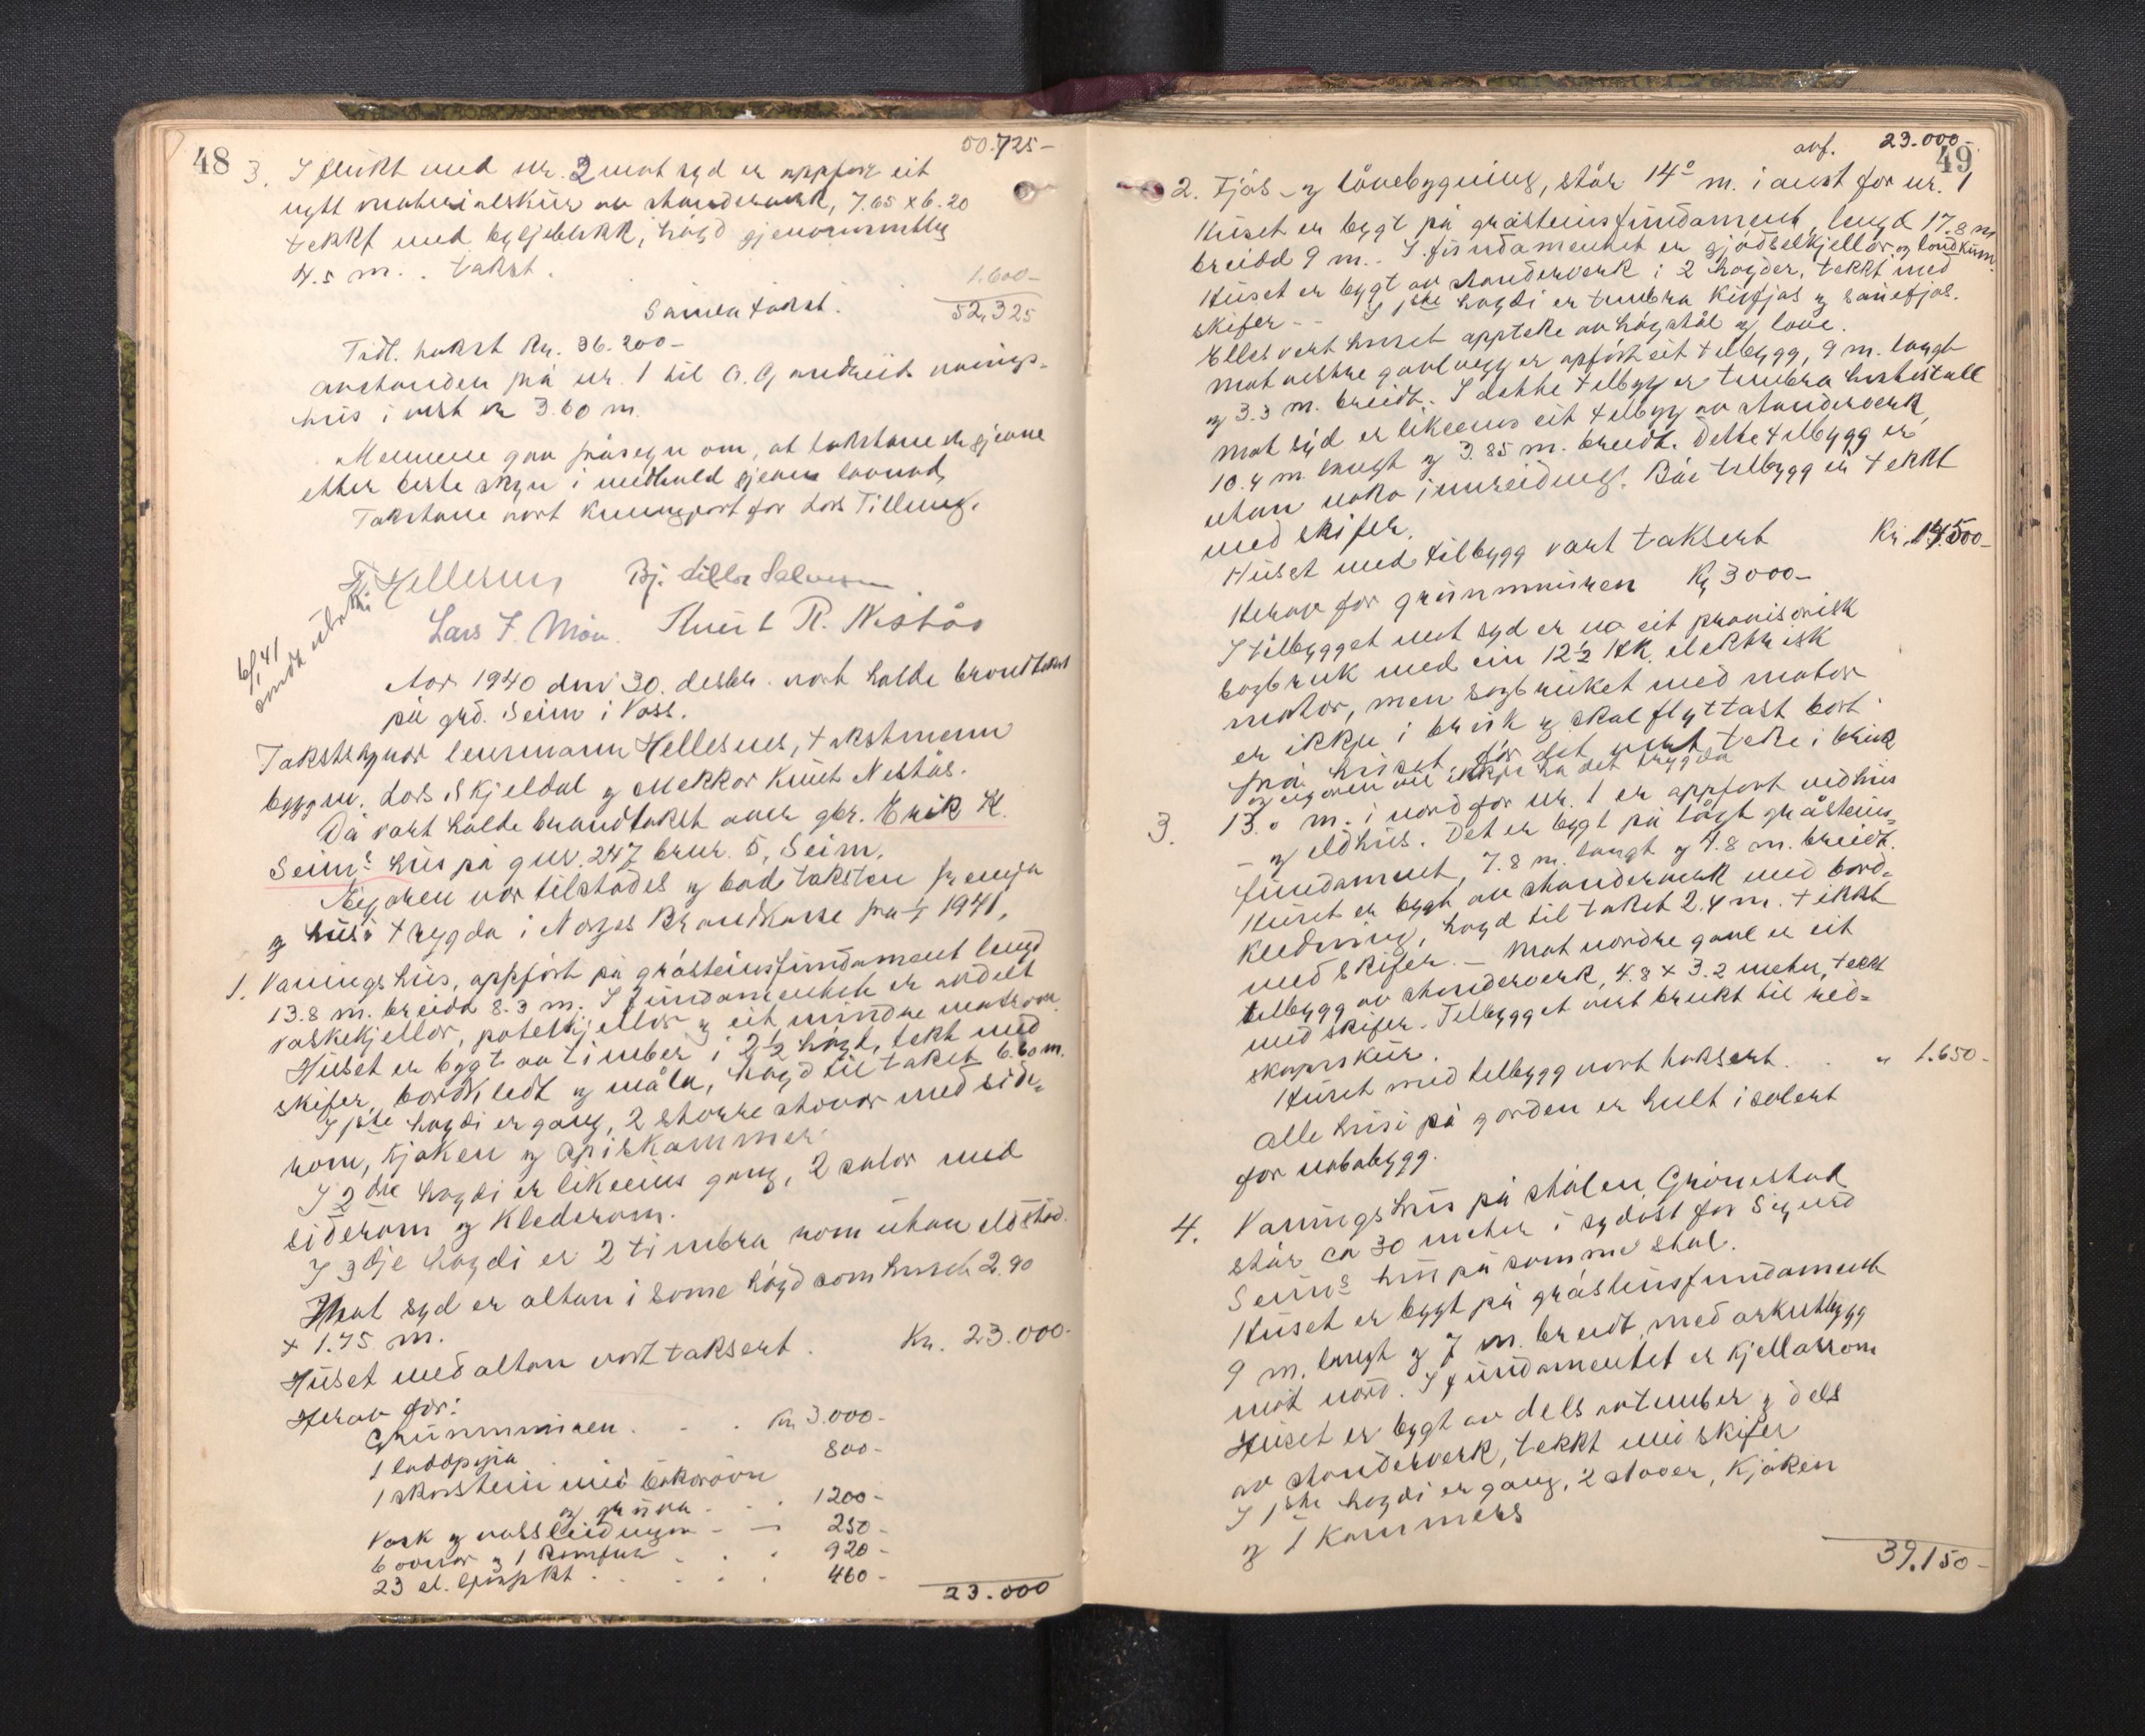 48
50.725-
3. I flukt med nr. 2 mot syd er oppført eit
nytt materialskur av standerverk, 7.65 x 6.20
tekkt med bylgjeblikk, høgd gjenomsnittleg
4.5 m. . takst. 1.600-
Samla takst. 52,325
Tidl. takst Kr. 36.200-
avstanden frå nr. 1 til vånings-
hus i vest er 3.60 m.
Mennene gav fråsegn om, at takstane er gjevne
etter beste skyn i medhald gjevne lovnad,
Takstane vart kunngjort for Lars Tillung.
Hellesnes Bj. Lilles Salvesen
Lars F. Møn. Knut R. Nestås
6/1 41
sendt utskr.
Aar 1940 den 30. desbr. vart halde brandtakst
på grd. Seim i Voss.
Takstskynar lensmann Hellesnes, takstmenn
byggm. Lars Skjeldal og snekkar Knut Nestås.
Då vart halde brandtakst over gbr. Erik K.
Seims hus på gnr. 247 brnr. 5, Seim.
Eigaren var tilstades og bad taksten fremja
og husi trygda i Norges Brandkasse frå 1/1 1941.
1. Våningshus, oppført på gråsteinsfundament lengd
13.8 m. breidd 8.3 m. I fundamentet er avdelt
vaskekjellar, potetkjellar og eit mindre matrom
Huset er bygt av timber i 2½ høgd, tekt med
skifer, bordkledt og måla, høgd til taket 6.60 m.
I 1ste høgdi er gang, 2 større stovor med side-
rom, kjøken og spiskammer
I 2dre høgdi er likeeins gang, 2 salar med
siderom og klederom.
I 3dje høgdi er 2 timbra rom utan eldstad.
Mot syd er altan i same høgd som huset 2.90
x 1.75 m.
Huset med altan vart taksert . Kr. 23.000-
Herav for:
Grunnmuren . . . Kr 3.000-
1 laddpipa 800-
1 skorstein med bakarovn
og gruva . . 1200-
Vask og vassleidingen - - 250-
6 ovnar og 1 komfur . . 920-
23 el. ljospkt . . . . . 460-
23.000
49
ovf. 23.000-
2. Fjøs- og løvebygning, står 14.0 m. i aust for nr. 1
Huset er bygt på gråsteinsfundament, lengd 17.8 m
breidd 9 m. . I fundamentet er gjødselkjellar og landkum.
Huset er bygt av standerverk i 2 høgder, tekkt med
skifer - - I 1ste høgdi er timbra kufjøs og sauefjøs.
Elles vert huset oppteke av høystål og løve.
Mot vestre gavlvegg er opført eit tilbygg, 9 m. langt
og 3.3 m. breidt. I dette tilbygg er timbra hestestall
Mot syd er likeeins eit tilbygg av standerverk,
10.4 m. langt og 3.85 m. breidt. Dette tilbygg er
utan noko innreiding. Båe tilbygg er tekkt
med skifer.
Huset med tilbygg vart taksert Kr. 14.500-
Herav for grunnmuren Kr 3000-
I tilbygget mot syd er no eit provisorisk
sagbruk med ein 12½ HK. elektrisk
motor, men sagbruket med motor
er ikkje i bruk og skal flyttast bort
frå huset, før det vert teke i bruk
og eigaren vil ikkje ha det trygda
3. 13.0 m. i nord for nr. 1 er oppført vedhus
- og eldhus. Det er bygt på lågt gråsteins-
fundament, 7.8 m. langt og 4.8 m. breidt.
Huset er bygt av standerverk med bord-
kledning, høgd til taket 2.4 m. tekkt
med skifer. - Mot nordre gavl er eit
tilbygg av standerverk, 4.8 x 3.2 meter, tekkt
med skifer. Tilbygget vert brukt til reid-
skapsskur.
Huset med tilbygg vart taksert. . . " 1.650-
Alle husi på garden er heilt isolert
for nabobygg.
4. Våningshus på stølen Grønestad
står ca 30 meter i sydost for Sigurd
Seims hus på samme støl.
Huset er bygt på gråsteinsfundament
9 m. langt og 7 m. breidt, med arkutbygg
mot nord. I fundamentet er kjellarrom
Huset er bygt av dels av timber og dels
av standerverk, tekkt med skifer
I 1ste høgdi er gang, 2 stover, kjøken
og 1 kammers
39.150-